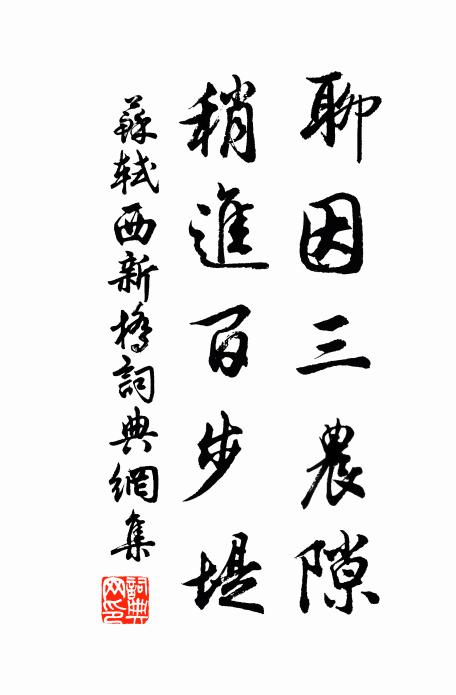 聊因三農隙
稍進百步堤
蘇軾西新橋詞典網集
詞典網印